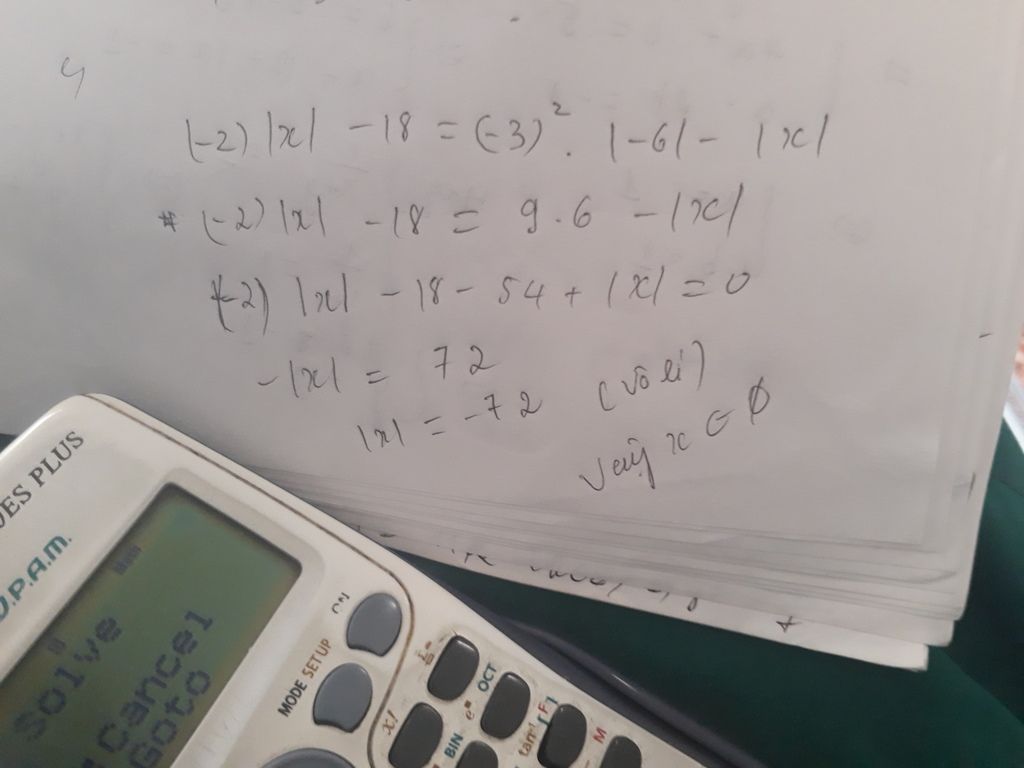 (-2) |x| - 18 = (-3)². |-6| - |x|
* (-2) |x| - 18 = 9.6 - |x|
(-2) |x| - 18 - 54 + |x| = 0
- |x| = 72
|x| = -72 (vô lí)
Vậy x ∈ ∅
ES PLUS
.P.A.M.
Math
Solve
Cancel
Goto
ON
MODE SETUP
x!
OCT
BIN
e
tan⁻¹
[F]
M